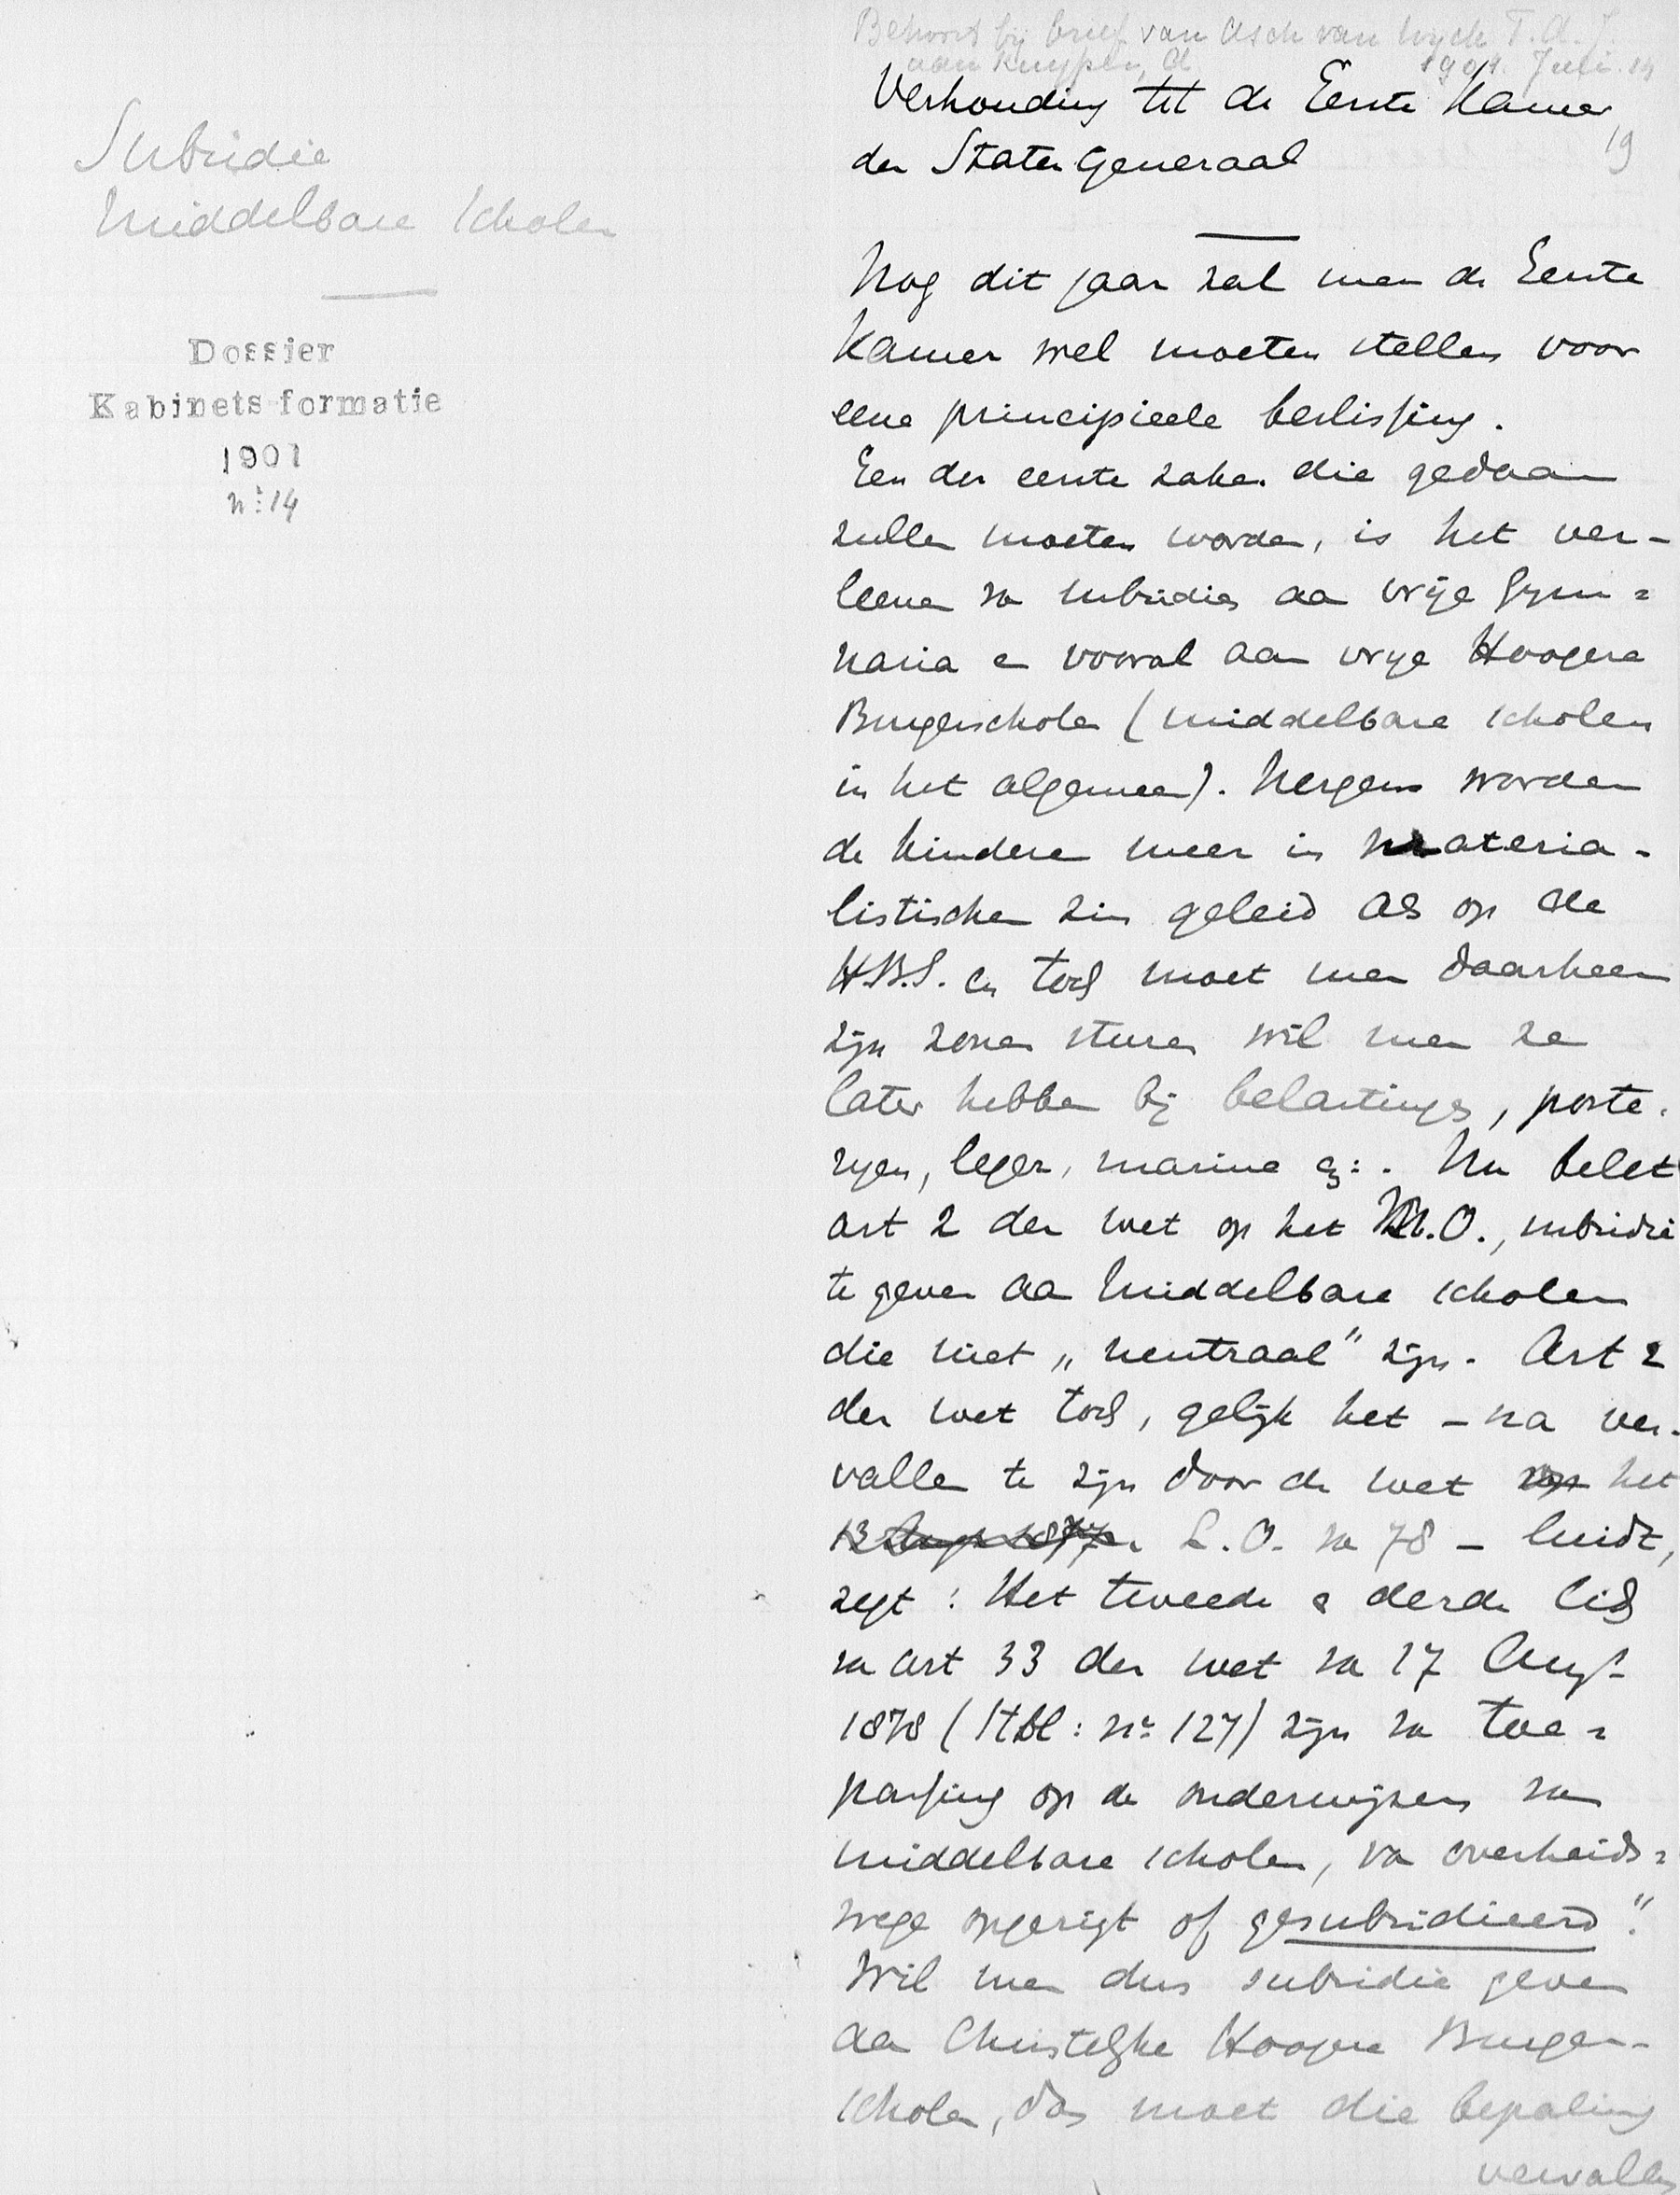 Behoort bij brief van Asch van Wijck T.A.J.
aan Kuyper, A 1901. Juli. 14
Verhouding tot de Eerste Kamer
der Staten Generaal
19
Subsidie
Middelbare Scholen
Dossier
Kabinetsformatie
1901
no: 14
Nog dit jaar zal men de Eerste
Kamer wel moeten stellen voor
eene principieele beslissing.
Een der eerste zaken die gedaan
zullen moeten worden, is het ver-
leenen van subsidies aan vrije Gym=
nasia en vooral aan vrije Hoogere
Burgerscholen (middelbare scholen
in het algemeen). Nergens worden
de kinderen meer in materia-
listischen zin geleid als op de
H.B.S. en toch moet men daarheen
zijn zonen sturen wil men ze
later hebben bij belastingen, poste-
rijen, leger, marine enz:. Nu belet
art 2 der wet op het M.O., subsidie
te geven aan Middelbare scholen
die niet „neutraal” zijn. Art 2
der wet toch, gelijk het – na ver-
vallen te zijn door de wet op het
L.O. van 78 – luidt,
zegt: Het tweede en derde lid
van art 33 der wet van 17 Aug.
1878 (Stbl: no 127) zijn van toe=
passing op de onderwijzers van
middelbare scholen, van overheids=
wege opgerigt of gesubsidieerd”.
Wil men dus subsidie geven
aan Christelijke Hoogere Burger-
scholen, dan moet die bepaling
vervallen